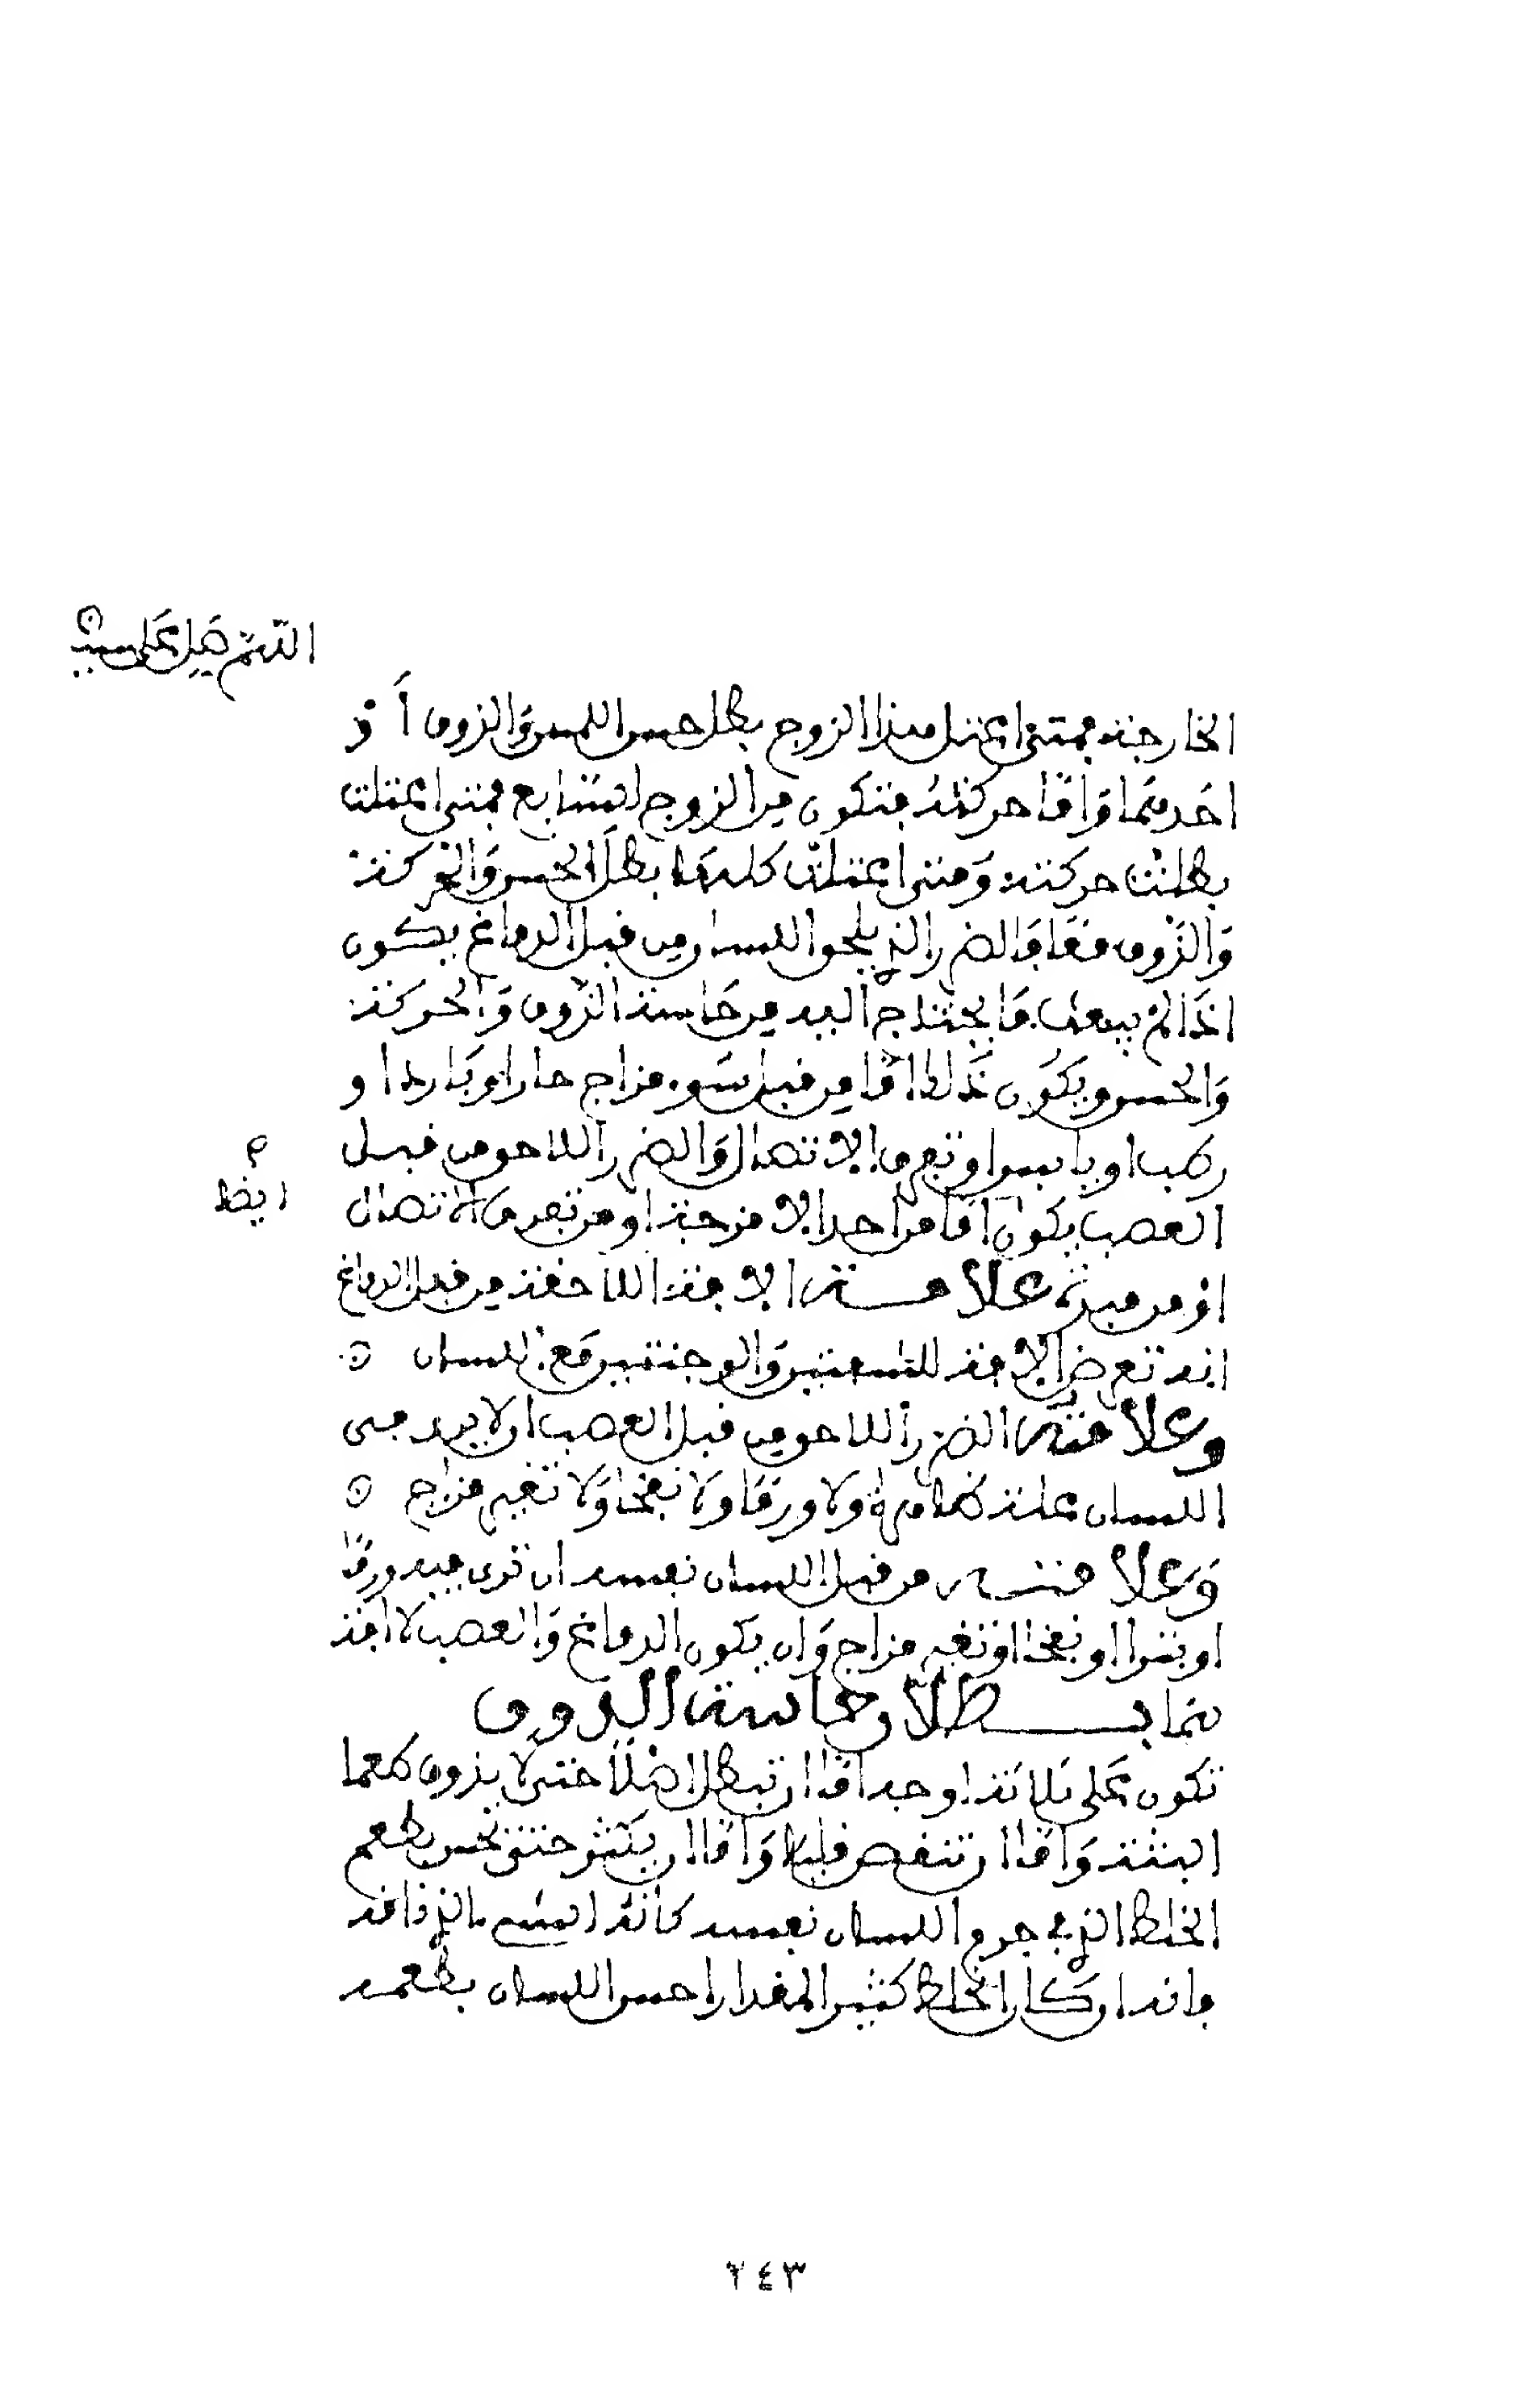 اللهم صل على سيد
الخارجة فمتى اعتل هذا الزوج بطل حس اللمس والذوق أو
احدهما واما حركته فتكون من الزوج السابع فمتى اعتلت
بطلت حركته ومتى اعتلت كلها بطل الحس والحركة
والذوق معا والضرر الذي يلحق اللسان من قبل الدماغ يكون
اذا لم يبعث ما يحتاج اليه من حاسة الذوق والحركة
والحس ويكون ذلك اما من قبل سوء مزاج حار او بارد او
رطب او يابس او تعرق الاتصال والضرر اللاحق من قبل
ايضا
العصب يكون اما من احد الامزجة او من تفرق الاتصال
او من فيه علامة الافة اللاحقة من قبل الدماغ
انه تعرض الافة للشفتين والوجنتين مع اللسان
وعلامة الضرر اللاحق من قبل العصب ان لا يرى في
اللسان علة ظاهرة ولا ورما ولا نفخا ولا تغير مزاج
وعلامته من قبل اللسان نفسه ان ترى فيه ورما
او بثرا او نفخا او تغير مزاج وان يكون الدماغ والعصب لا افة
بهما بطلان حاسة الذوق
تكون على ثلاثة اوجه اما ان تبطل اصلا حتى لا يذوق طعما
البتة واما ان تنقص قليلا واما ان يكثر حتى تحس بطعم
الخلط الذي في جرم اللسان نفسه كانه الشيء الذي ذاقه
فانه ان كان الخلط كثير المقدار احس اللسان بطعمه
٢٤٣